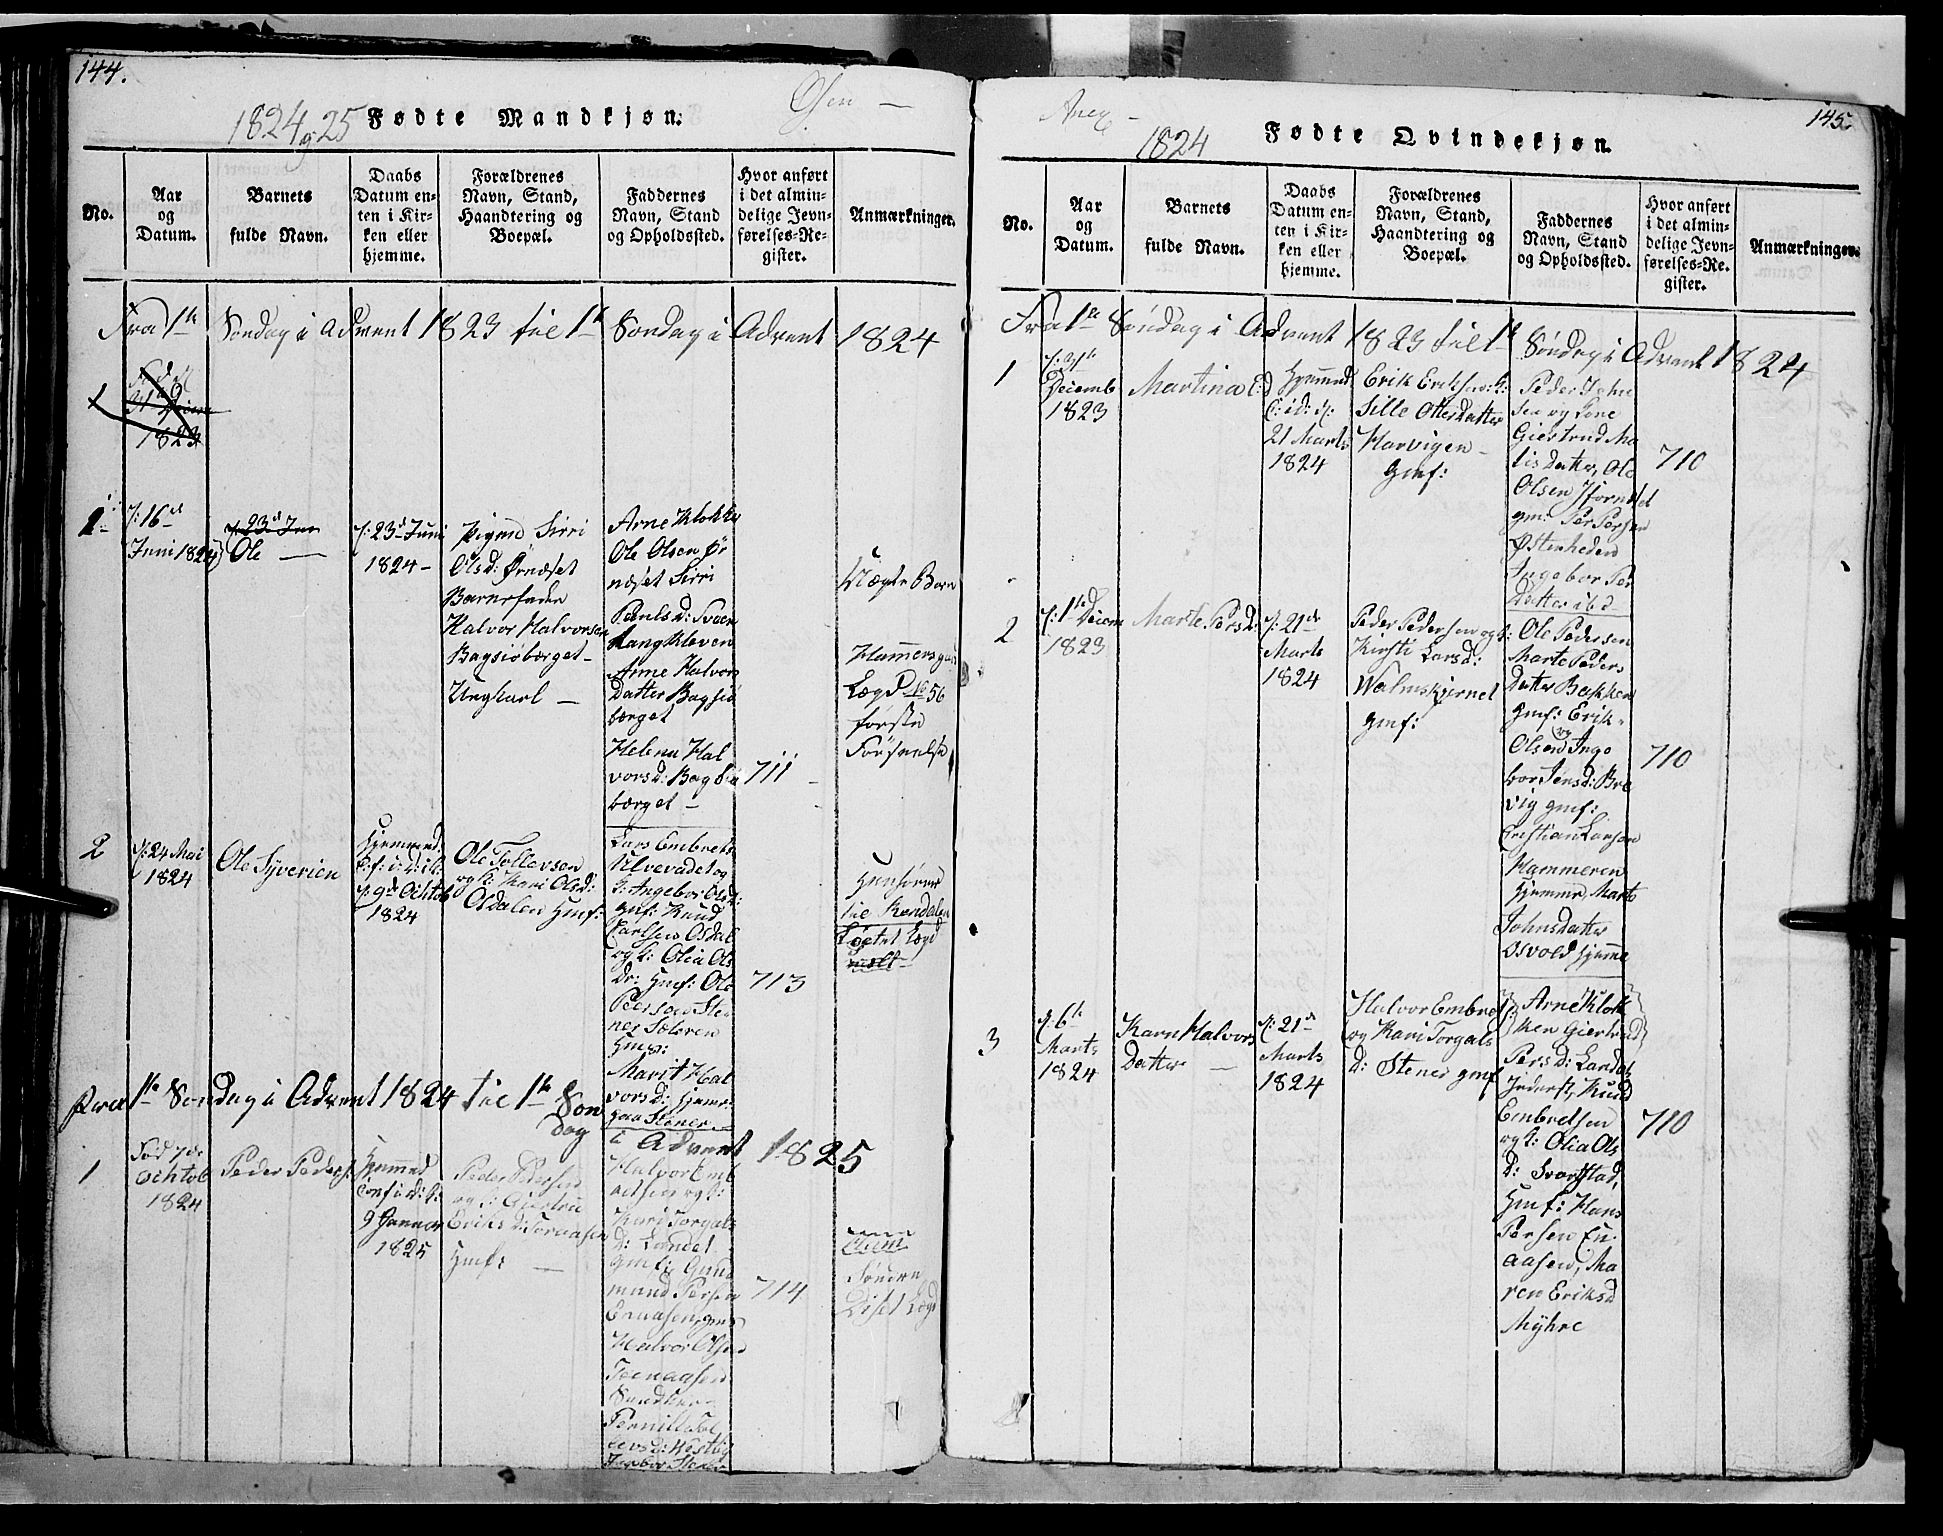 144.
1824 g 25 Fødte Mandkjøn.
Osen —
No.
Aar
og
Datum.
Barnets
fulde Navn.
Daabs
Datum en-
ten i Kir-
ken eller
hjemme.
Forældrenes
Navn, Stand,
Haandtering og
Boepæl.
Faddernes
Navn, Stand
og Opholdssted.
Hvor anført
i det almin-
delige Jevn-
førelses-Re-
gister.
Anmærkninger.
Fra 1te Søndag i Advent 1823 til 1te Søndag i Advent 1824
1
1823
1
d: 16de
Juni 1824
d. 23de Jun
Ole —
d: 23de Juni
1824 —
Pigen Sirri
Olsd: Ørnæset
Barnefader
Halvor Halvorsen
Bagsiøbærget —
Ungkarl —
Arne Klokker
Ole Olsen Ør
næset Sirri
Paulsd: Sveen
Langkleven
Arne Halvors
Datter Bagsiø
bærget
Helena Hal
vorsd: Bagsiø
bærget —
711 —
Uægte Barn
Hammers
Lægd 56
første
Forseelse
2
d: 24 Mai
1824
Ole Syverien
Hjemmed:
d. 9de Ochtob
1824
Ole Tollevsen
og k: Kari Olsd:
Osdalen Gmf:
Lars Embrets
Ulvevadet og
k: Ingebor Olsd:
gmf: Knud
Carlsen Osdal
og k: Olia Ols
Dr: Gmf: Ole
Peersen Ste
ner Sæteren
Gmf:
Marit Hal
vorsd: hjeme
paa Stener —
713
Henfører
til Rendalen
Lægd
Fra 1te Søndag i Advent 1824 til 1te Søn
dag
i Advent 1825
1
Fød 7de
Ochtob
1824
Peder Peders:
Hjemmed
Conf: i d: k:
9 Januar
1825
Peder Pedersen
og k: Giertru
Eriks d: Torvaasen
Gmf: —
Halvor Emb
retsen og k:
Kari Torgals
d: Landet
gmf: Gud
mund Persen
Enaasen, gm:
Halvor Olsen
Teenaasen
Sandker
Pernille Tol
levsd: Westby
Ingebor Stener
714
Søndre
Lægd
Anex —
145.
1824 Fødte Qvindekjøn.
No.
Aar
og
Datum.
Barnets
fulde Navn.
Daabs
Datum en-
ten i Kir-
ken eller
hjemme.
Forældrenes
Navn, Stand,
Haandtering og
Boepæl.
Faddernes
Navn, Stand
og Opholdssted.
Hvor anført
i det almin-
delige Jevn-
førelses-Re-
gister.
Anmærkninger.
Fra 1te Søndag i Advent 1823 til 1te Søndag i Advent 1824
1
d: 31te
Decemb
1823
Martina E: D
Hjemmed
C: i d: k:
21 Marts
1824
Erik Eriksen og k:
Sille Olsdatter
Harvigen —
gmf:
Peder John
sen og Kone
Giertrud Ma
tis datter, Ole
Olsen
gm: Per Persen
Østenheden
Ingebor Per
datter ibd —
710
2
d: 1te Decem
1823
Marte Persd:
d: 21de
Marts
1824
Peder Pedersen og k:
Kirsti Larsd:
Walmskjernet
gmf:
Ole Pedersen
Marte Peders
datter Bakken
gmf: Erik
Olsen og Inge
bor Jensd: Bre
vig gmf:
Cristian Larsen
Hammeren
hjemme, Marte
Johnsdatter
Osvold hjemme
710
3
d. 6te
Marts
1824
Karn Halvors
Datter —
d: 21de
Marts
1824
Halvor Embrets:
og Kari Torgals
d: Stener gmf
Arne Klok
ken Giertrud
Pers d: Landet
Knud
Embretsen
og k: Olia Ols
d: Svarstad,
Gmf: Hans
Persen En-
aasen, Ma
ren Eriksd
Myhre
710